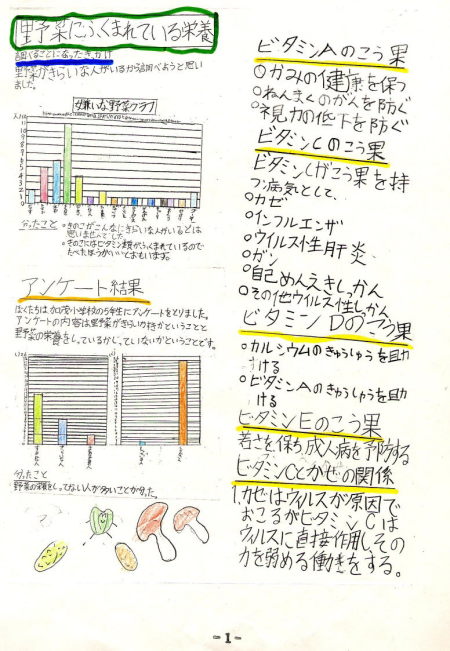 野菜にふくまれている栄養
調べることになったきっかけ
野菜がきらいな人がいるから調べようと思い
ました。
嫌いな野菜グラフ
分ったこと
○きのこがこんなにきらいな人がいるとは
思いませんでした。
○きのこにはビタミン類がふくまれているので
たべたほうがいいとおもいます。
アンケート結果
ぼくたちは加茂小学校の5年生にアンケートをとりました。
アンケートの内容は野菜がきらいか好きかということと
野菜の栄養をしっているか、していないかということです。
分ったこと
野菜の栄養をしってない人が多いことが分った。
ビタミンAのこう果
○かみの健康を保つ
○ねんまくのがんを防ぐ
○視力の低下を防ぐ
ビタミンCのこう果
ビタミンCがこう果を持
つ病気として、
○カゼ
○インフルエンザ
○ウイルス性肝炎
○ガン
○自己めんえきしっかん
○その他ウイルス性しっかん
ビタミンDのこう果
○カルシウムのきゅうしゅうを助
ける
○ビタミンAのきゅうしゅうを助
ける
ビタミンEのこう果
若さを保ち、成人病を予防する
ビタミンCとかぜの関係
1.カゼはウィルスが原因で
おこるがビタミンCは
ウィルスに直接作用しその
力を弱める働きをする。
-1-